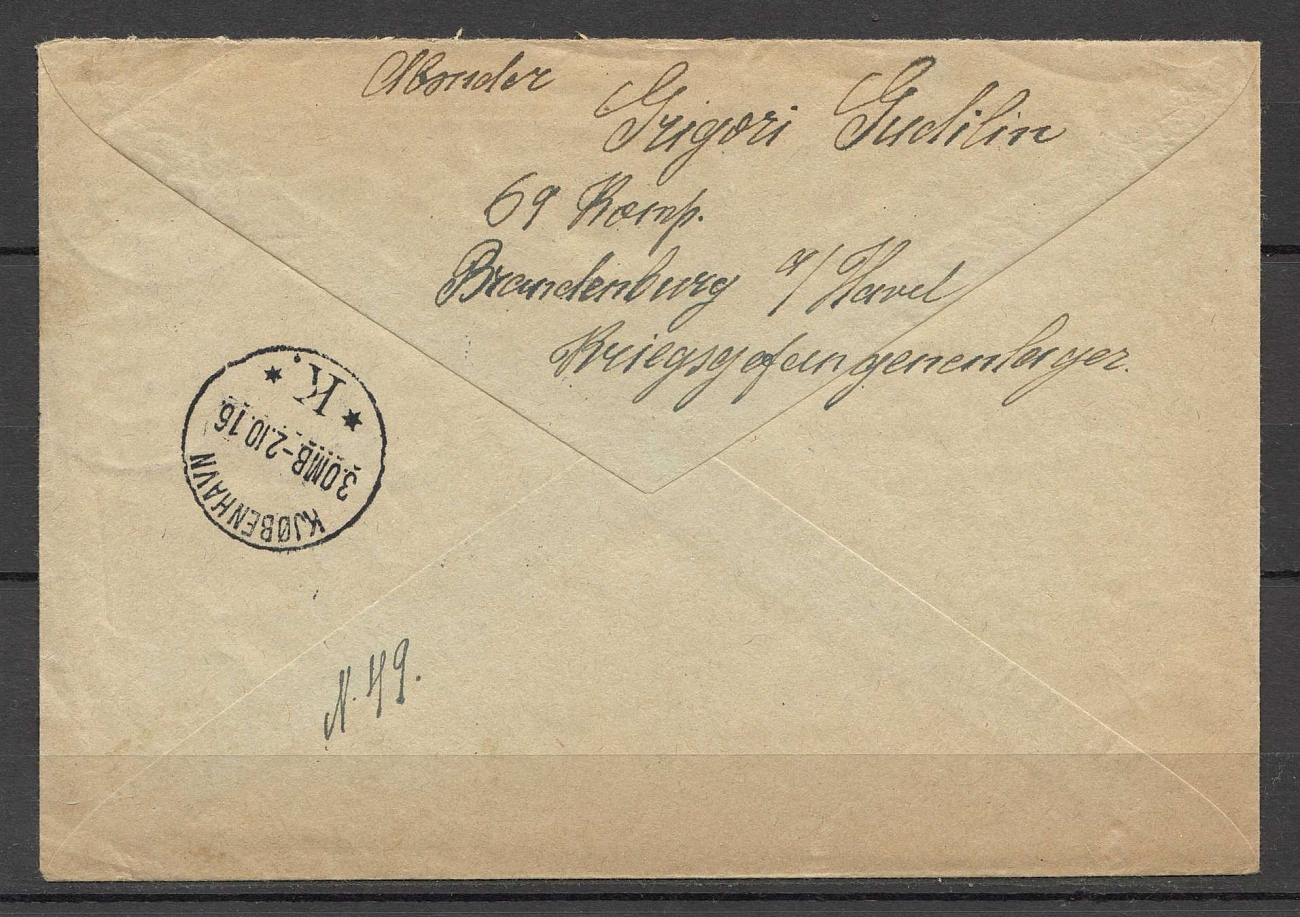 Absender
Grigori Gudilin
69 Komp.
Brandenburg a/Havel
Kriegsgefangenenlager.
KJØBENHAVN
3.OMB-2.10.16.
* K *
N. 49.